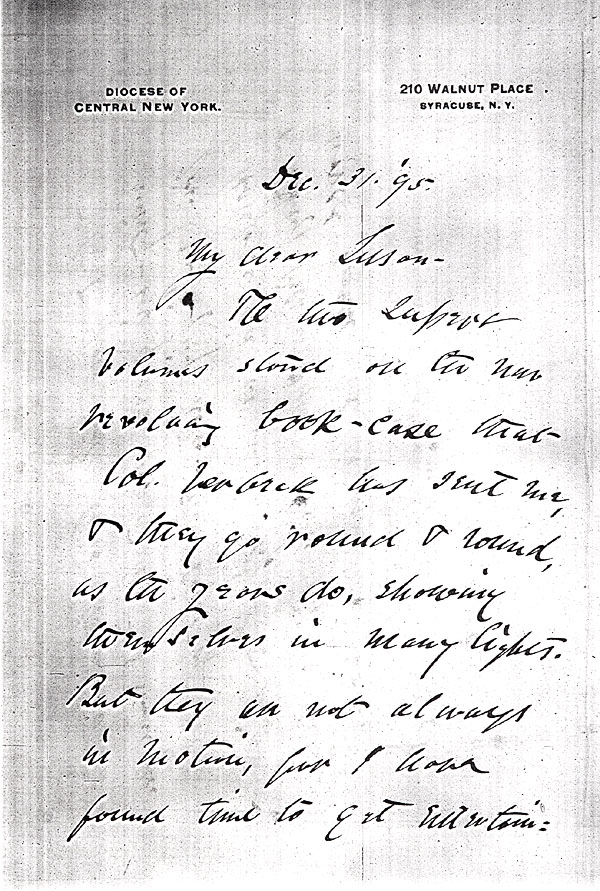 DIOCESE OF
CENTRAL NEW YORK.
210 WALNUT PLACE
SYRACUSE, N. Y.
Dec. 31. '95.
My dear
The two superb
volumes stand on the new
revolving book-case that
Col. Verbeck has sent me,
& they go round & round,
as the years do, showing
themselves in many lights.
But they are not always
in motion, for I have
found time to get entertain=